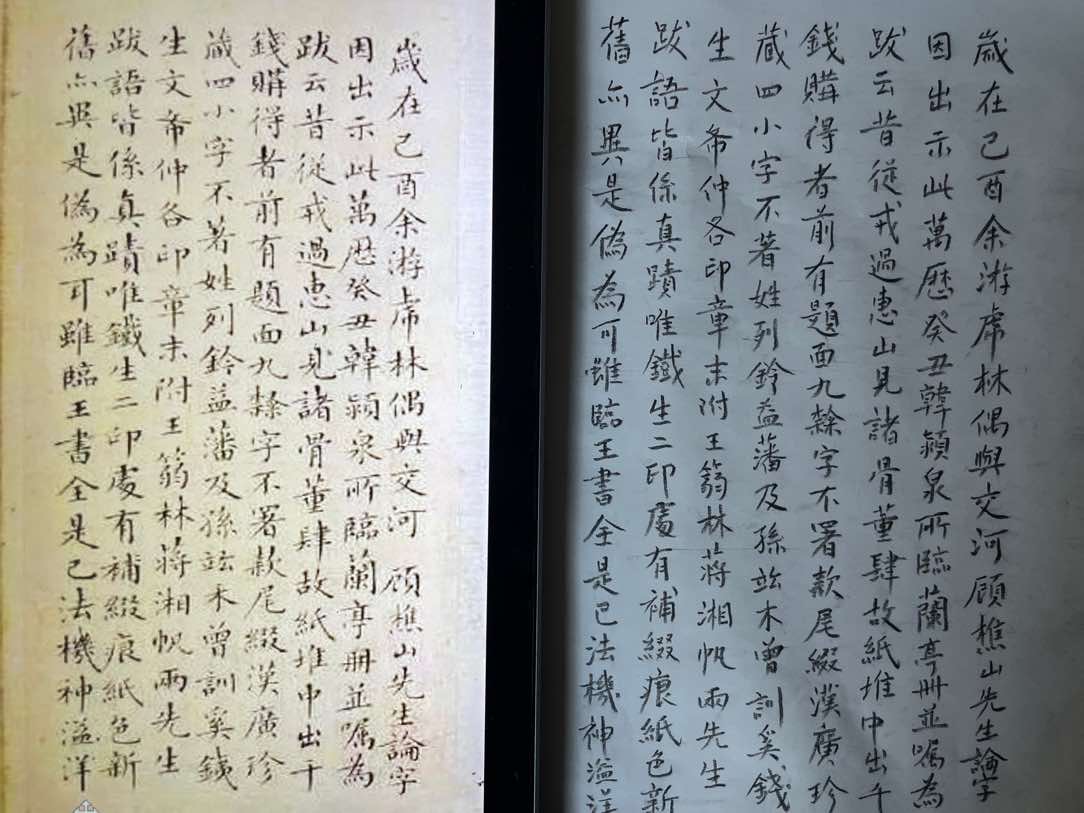 歲在己酉余游虎林偶與交河顧樵山先生論字
因出示此萬歷癸丑韓頴泉所臨蘭亭冊並囑為
跋云昔從戎過惠山見諸骨董肆故紙堆中出千
錢購得者前有題面九隸字不署款尾綴漢廣珍
藏四小字不著姓列鈐益藩及孫竝未曾訓奚銕
生文帝仲各印章末附王蒻林蔣湘帆兩先生
跋語皆係真蹟唯鐵生二印處有補綴痕紙色新
舊亦異是偽為可雖臨王書全是己法機神溢洋
歲在己酉余游虎林偶與交河顧樵山先生論字
因出示此萬歷癸丑韓頴泉所臨蘭亭冊並囑為
跋云昔從戎過惠山見諸骨董肆故紙堆中出千
錢購得者前有題面九隸字不署款尾綴漢廣珍
藏四小字不著姓列鈐益藩及孫竝木曾訓奚錢
生文帝仲各印章末附王蒻林蔣湘帆兩先生
跋語皆係真蹟唯鐵生二印處有補綴痕紙色新
舊亦異是偽為可雖臨王書全是已法機神溢洋